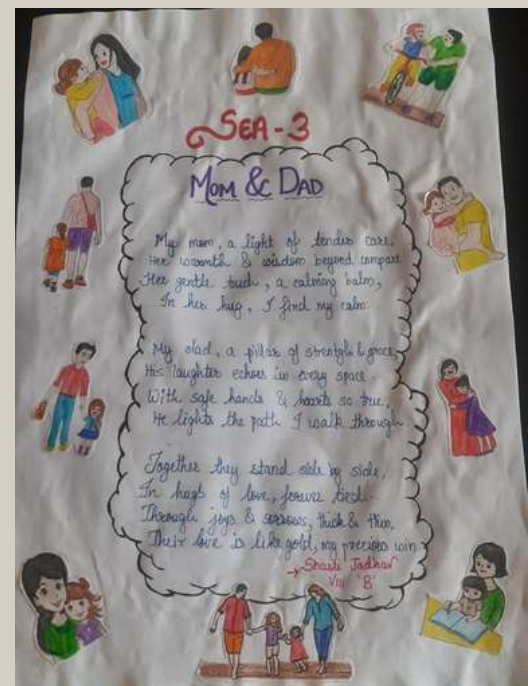 SEA-3
MOM & DAD
My mom, a light of tender care,
Her warmth & wisdom beyond compare
Her gentle touch, a calming balm,
In her hug, I find my calm.
My dad, a pillar of strength & grace,
His laughter echoes in every space
With safe hands & hearts so true,
He lights the path I walk through
Together they stand side by side,
In hugs of love, forever tied
Through joys & sorrows, thick & thin,
Their love is like gold, my precious win
→ Jadhav
VIII 'B'